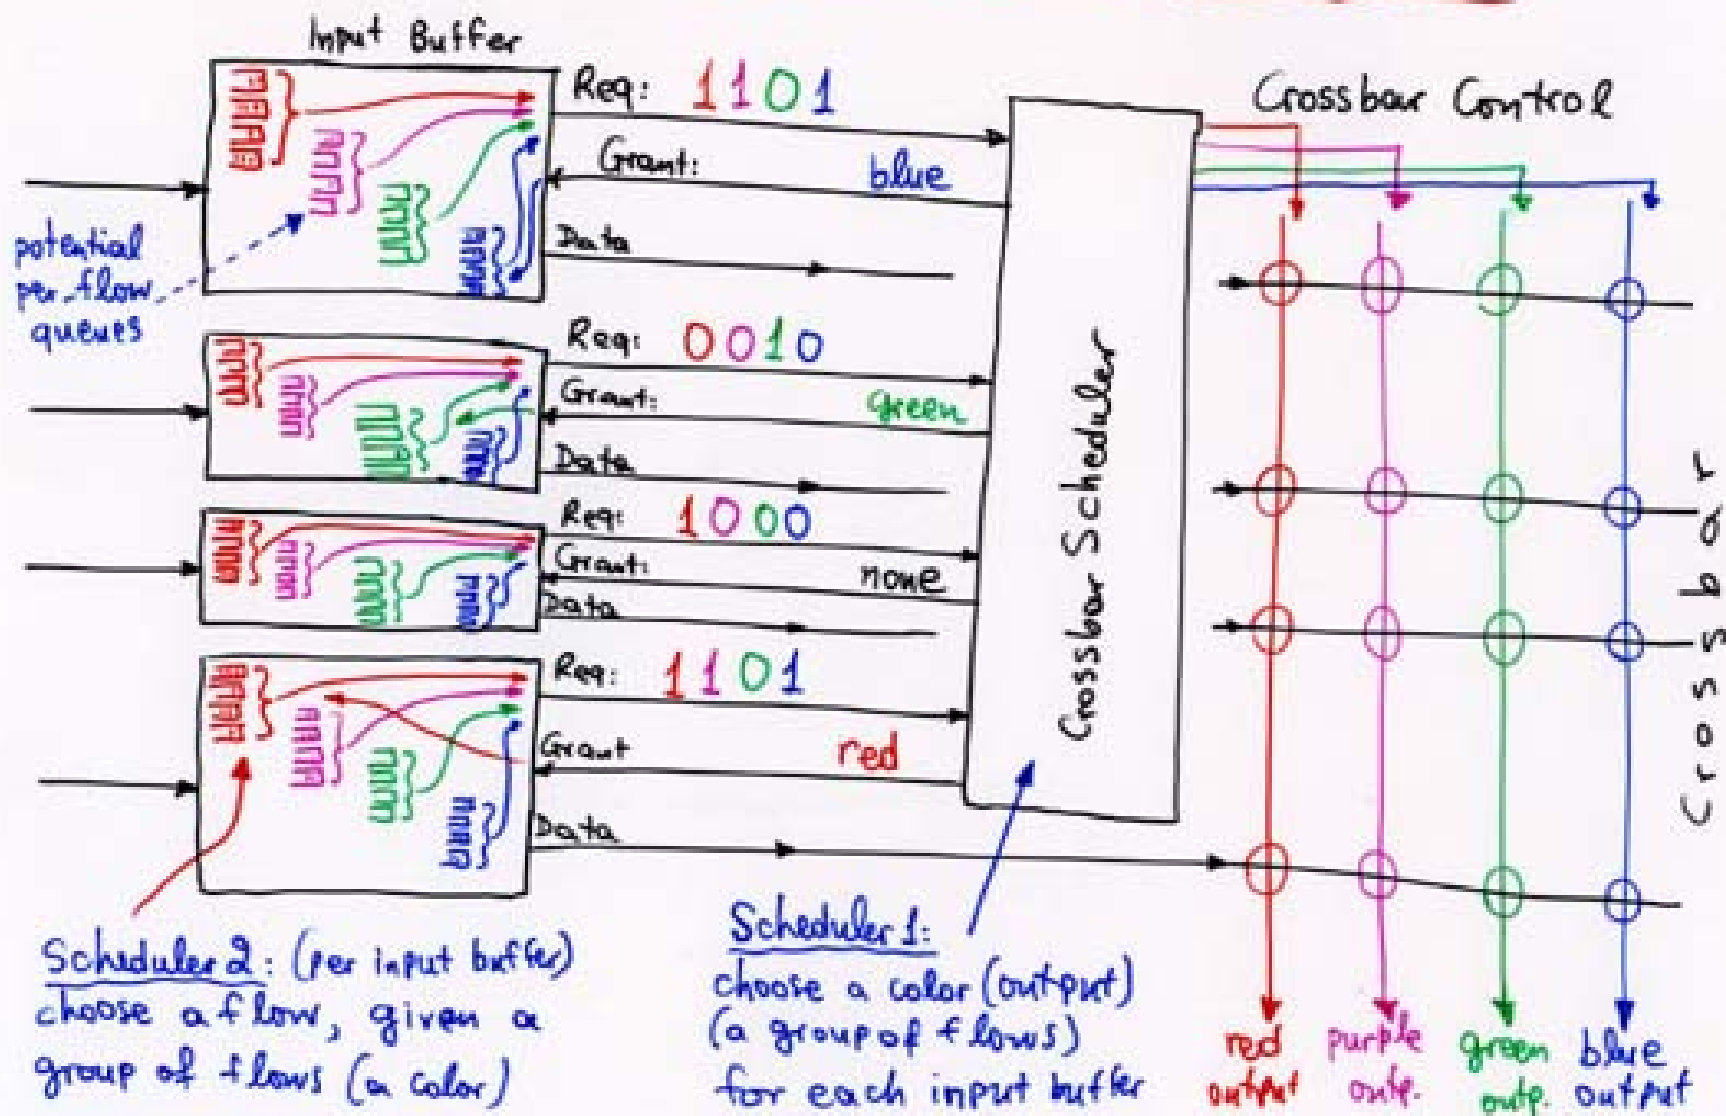 Input Buffer
Req: 1101
Crossbar Control
Grant: blue
Data
potential
per-flow
queues
Req: 0010
Grant: green
Data
Req: 1000
Grant: none
Data
Req: 1101
Grant red
Data
Crossbar Scheduler
Crossbar
Scheduler 2: (per input buffer)
choose a flow, given a
group of flows (a color)
Scheduler 1:
choose a color (output)
(a group of flows)
for each input buffer
red
output
purple
outp.
green
outp.
blue
output